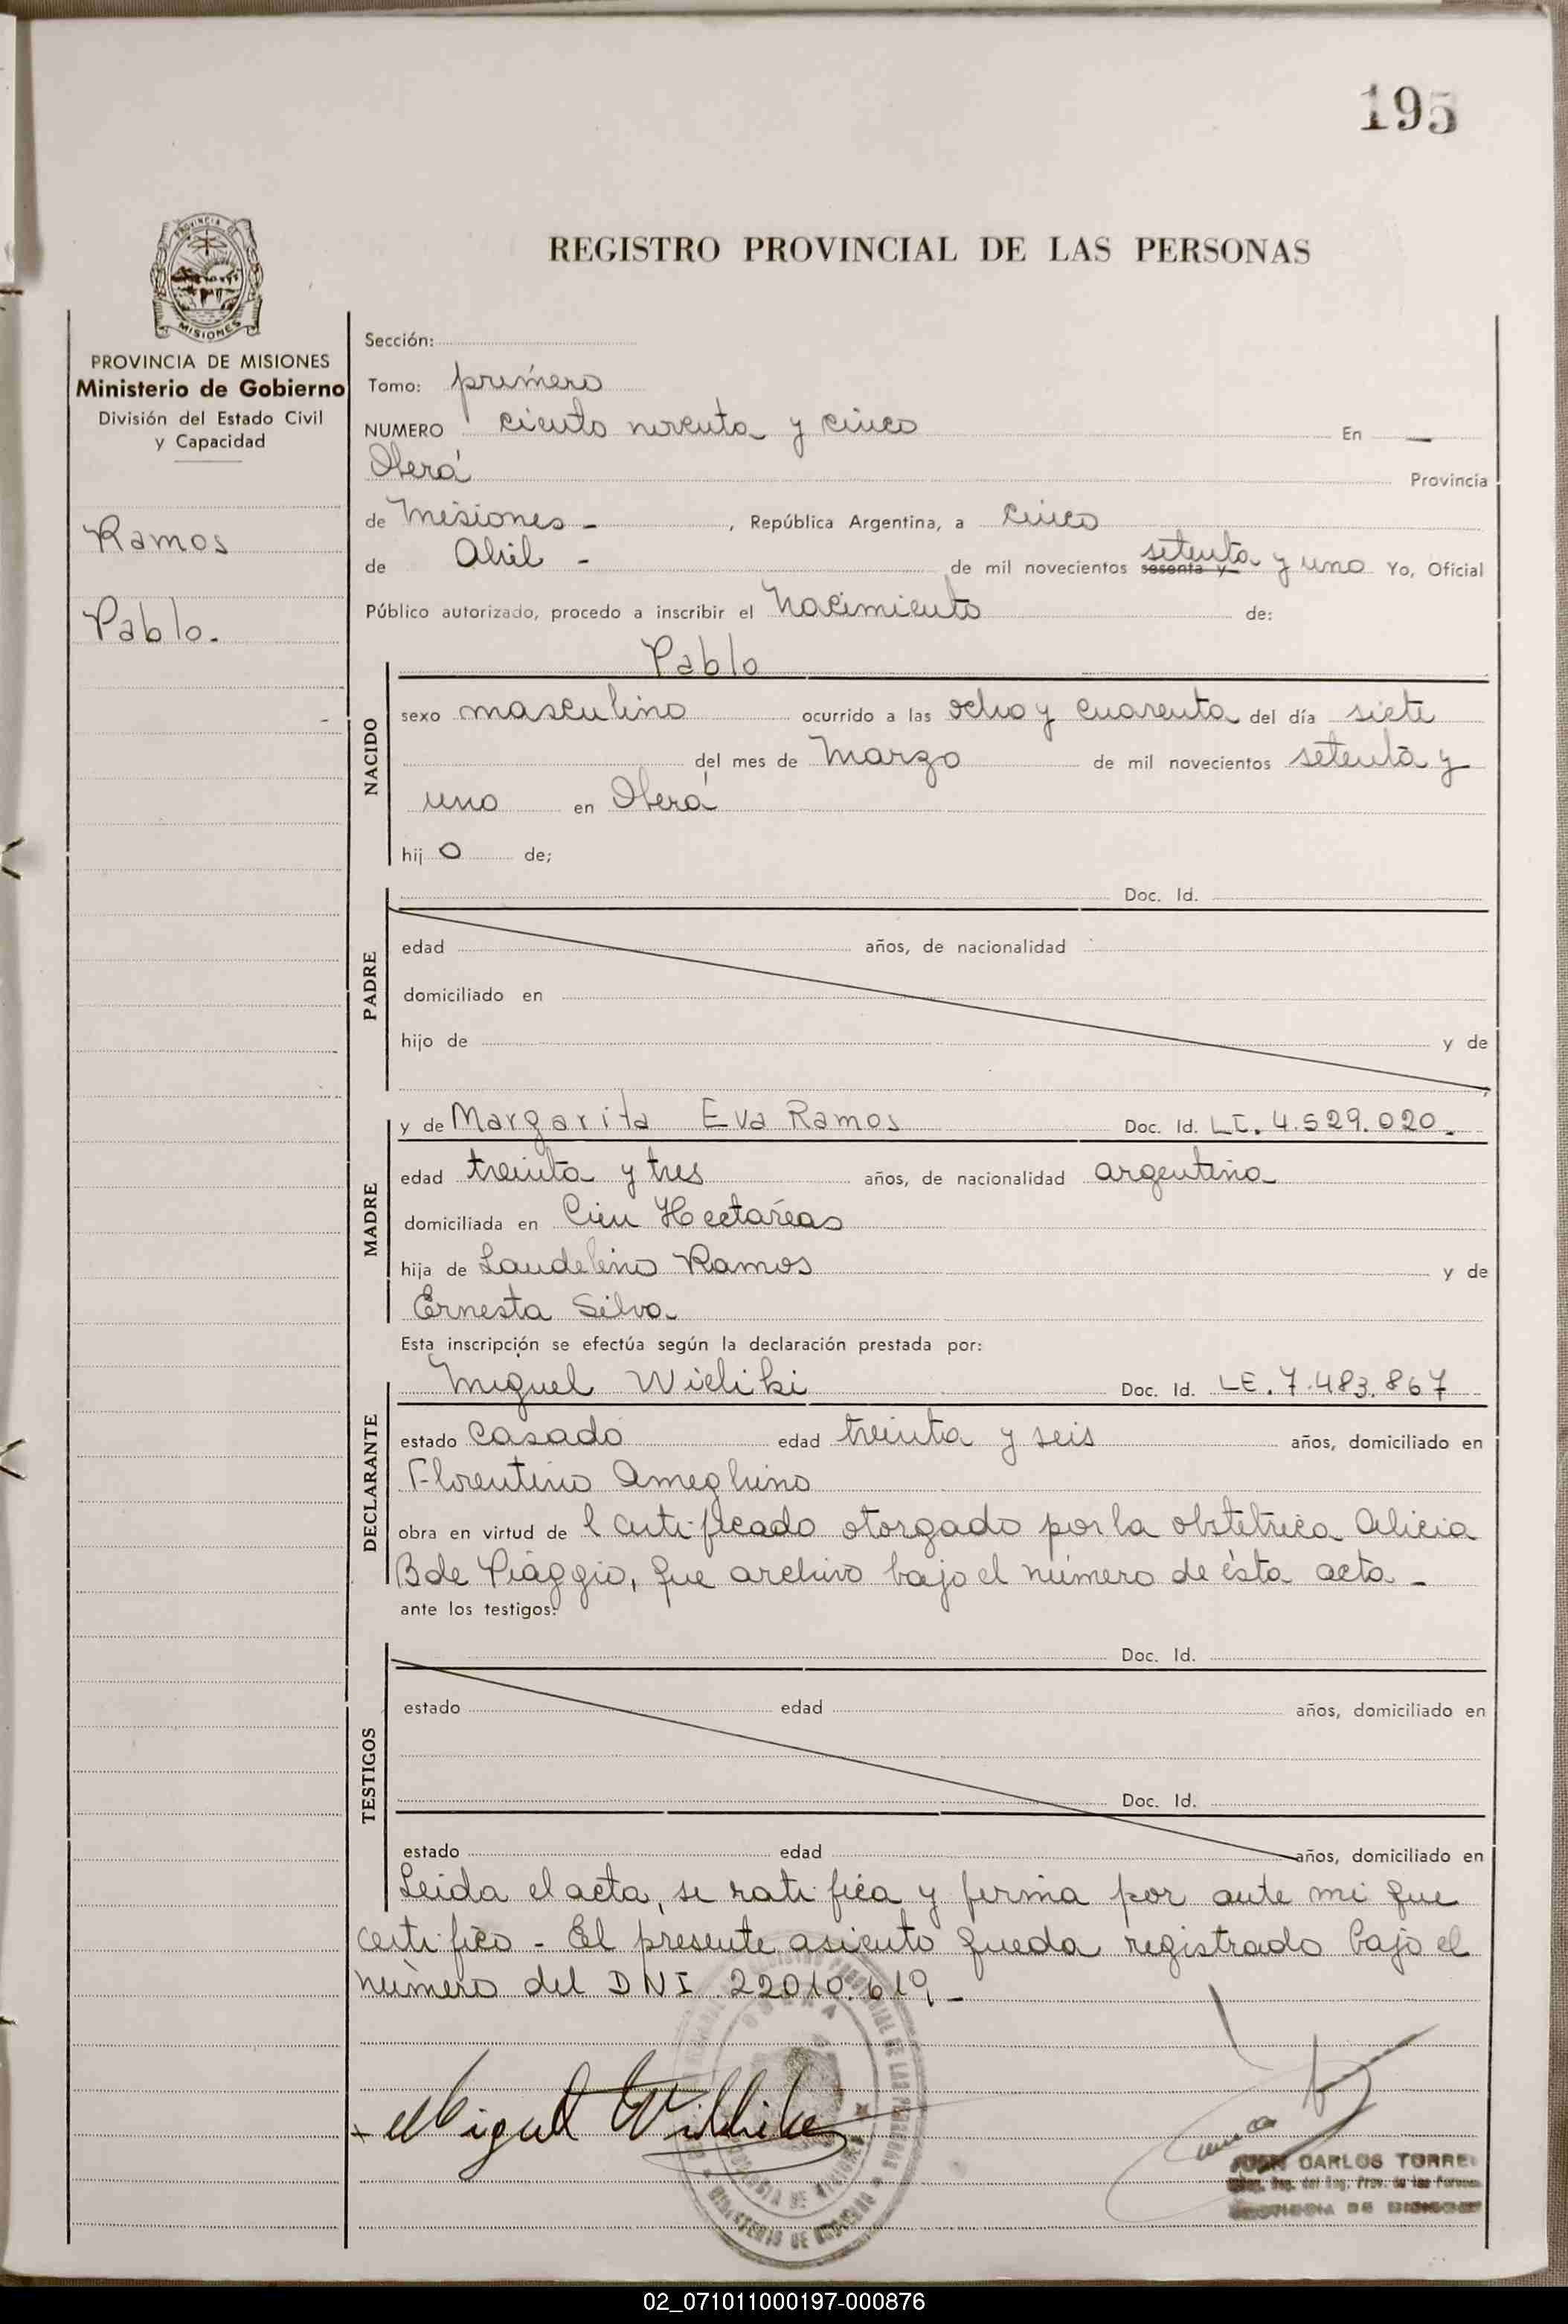 195
REGISTRO PROVINCIAL DE LAS PERSONAS
PROVINCIA DE MISIONES
Ministerio de Gobierno
División del Estado Civil
y Capacidad
Ramos
Pablo.
Sección:
Tomo: primero
NUMERO ciento noventa y cinco En —
Oberá Provincia
de Misiones - , República Argentina, a cinco
de Abril - de mil novecientos sesenta y setenta y uno Yo, Oficial
Público autorizado, procedo a inscribir el Nacimiento de:
Pablo
NACIDO
sexo masculino ocurrido a las ocho y cuarenta del día siete
del mes de Marzo de mil novecientos setenta y
uno en Oberá
hij o de;
PADRE
Doc. Id.
edad años, de nacionalidad
domiciliado en
hijo de y de
MADRE
y de Margarita Eva Ramos Doc. Id. LC. 4.529.020.
edad treinta y tres años, de nacionalidad argentina
domiciliada en Cien Hectáreas
hija de Laudelino Ramos y de
Ernesta Silva.
Esta inscripción se efectúa según la declaración prestada por:
DECLARANTE
Miguel Wieliki Doc. Id. LE. 7.483.867
estado casado edad treinta y seis años, domiciliado en
Florentino Ameghino
obra en virtud de l certificado otorgado por la obstetrica Alicia
B de Piaggio, que archivo bajo el número de ésta acta -
ante los testigos:
TESTIGOS
Doc. Id.
estado edad años, domiciliado en
Doc. Id.
estado edad años, domiciliado en
Leida el acta, se ratifica y firma por ante mi que
certifico - El presente asiento queda registrado bajo el
número del DNI 22010.619 -
CARLOS TORRE
02_071011000197-000876